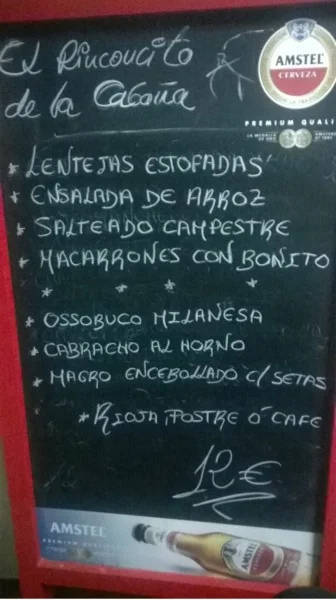 El Rinconcito
de la Cabaña
AMSTEL
CERVEZA
PREMIUM QUALI
* LENTEJAS ESTOFADAS
* ENSALADA DE ARROZ
* SALTEADO CAMPESTRE
* MACARRONES CON BONITO
* * * *
* OSSOBUCO MILANESA
* CABRACHO AL HORNO
* MAGRO ENCEBOLLADO C/ SETAS
* RIOJA, POSTRE Ó CAFE
12 €
AMSTEL
PREMIUM QUALI
AMSTEL